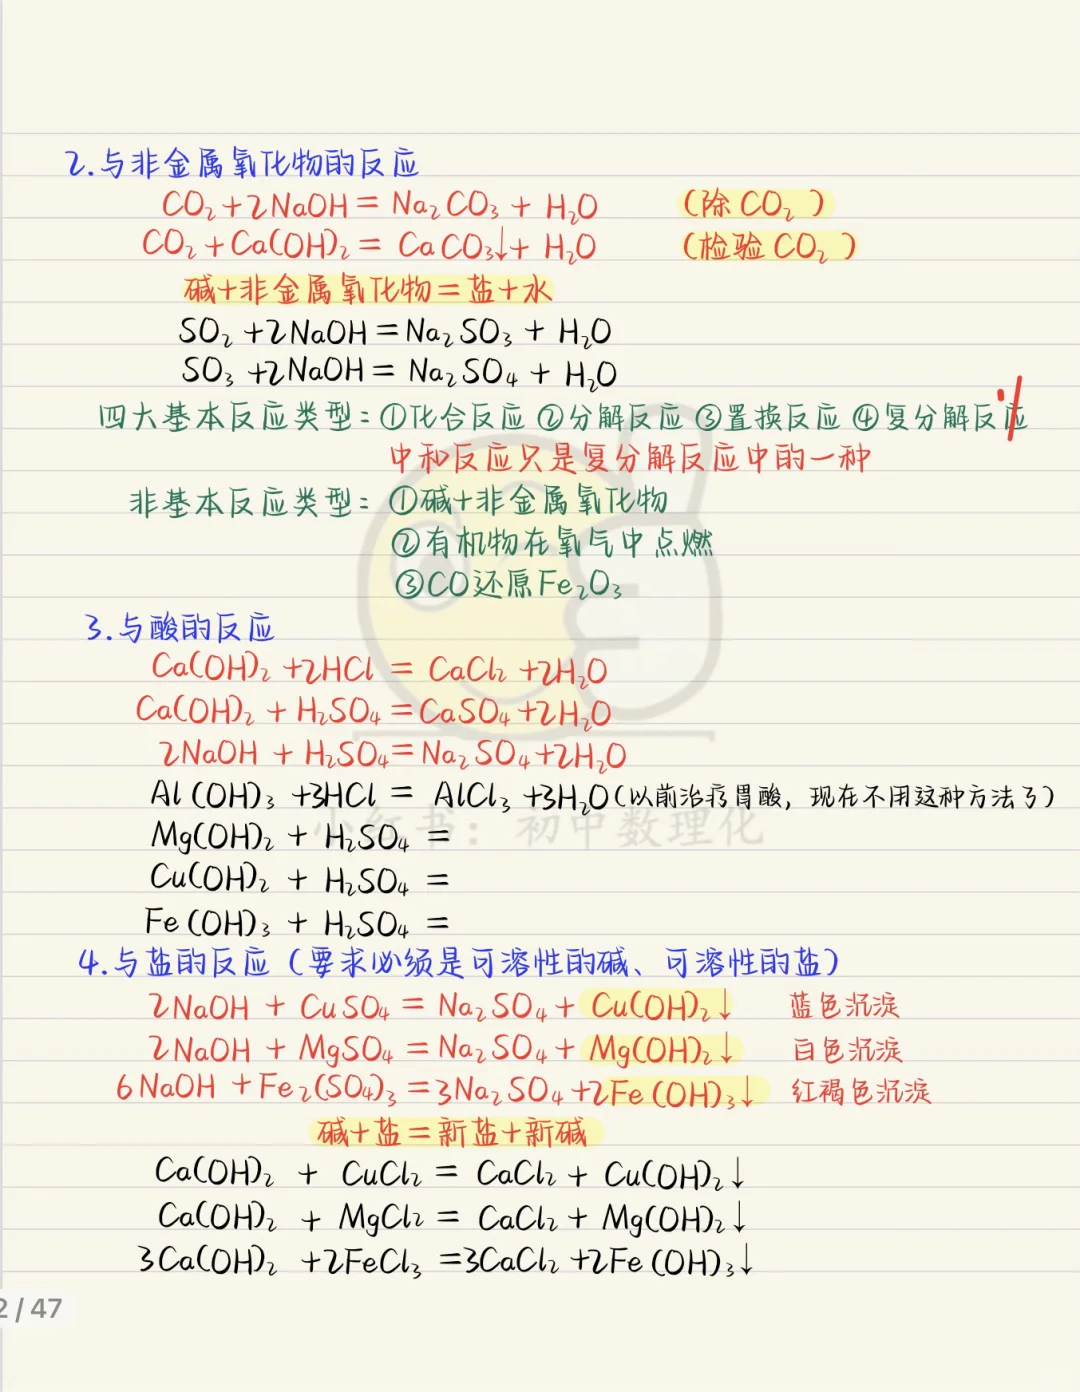 2.与非金属氧化物的反应
CO₂+2NaOH=Na₂CO₃+H₂O （除CO₂）
CO₂+Ca(OH)₂=CaCO₃↓+H₂O （检验CO₂）
碱+非金属氧化物=盐+水
SO₂+2NaOH=Na₂SO₃+H₂O
SO₃+2NaOH=Na₂SO₄+H₂O
四大基本反应类型：①化合反应 ②分解反应 ③置换反应 ④复分解反应
中和反应只是复分解反应中的一种
非基本反应类型：①碱+非金属氧化物
②有机物在氧气中点燃
③CO还原Fe₂O₃
3.与酸的反应
Ca(OH)₂+2HCl=CaCl₂+2H₂O
Ca(OH)₂+H₂SO₄=CaSO₄+2H₂O
2NaOH+H₂SO₄=Na₂SO₄+2H₂O
Al(OH)₃+3HCl=AlCl₃+3H₂O（以前治疗胃酸，现在不用这种方法了）
小红书：初中数理化
Mg(OH)₂+H₂SO₄=
Cu(OH)₂+H₂SO₄=
Fe(OH)₃+H₂SO₄=
4.与盐的反应（要求必须是可溶性的碱、可溶性的盐）
2NaOH+CuSO₄=Na₂SO₄+Cu(OH)₂↓ 蓝色沉淀
2NaOH+MgSO₄=Na₂SO₄+Mg(OH)₂↓ 白色沉淀
6NaOH+Fe₂(SO₄)₃=3Na₂SO₄+2Fe(OH)₃↓ 红褐色沉淀
碱+盐=新盐+新碱
Ca(OH)₂+CuCl₂=CaCl₂+Cu(OH)₂↓
Ca(OH)₂+MgCl₂=CaCl₂+Mg(OH)₂↓
3Ca(OH)₂+2FeCl₃=3CaCl₂+2Fe(OH)₃↓
2/47